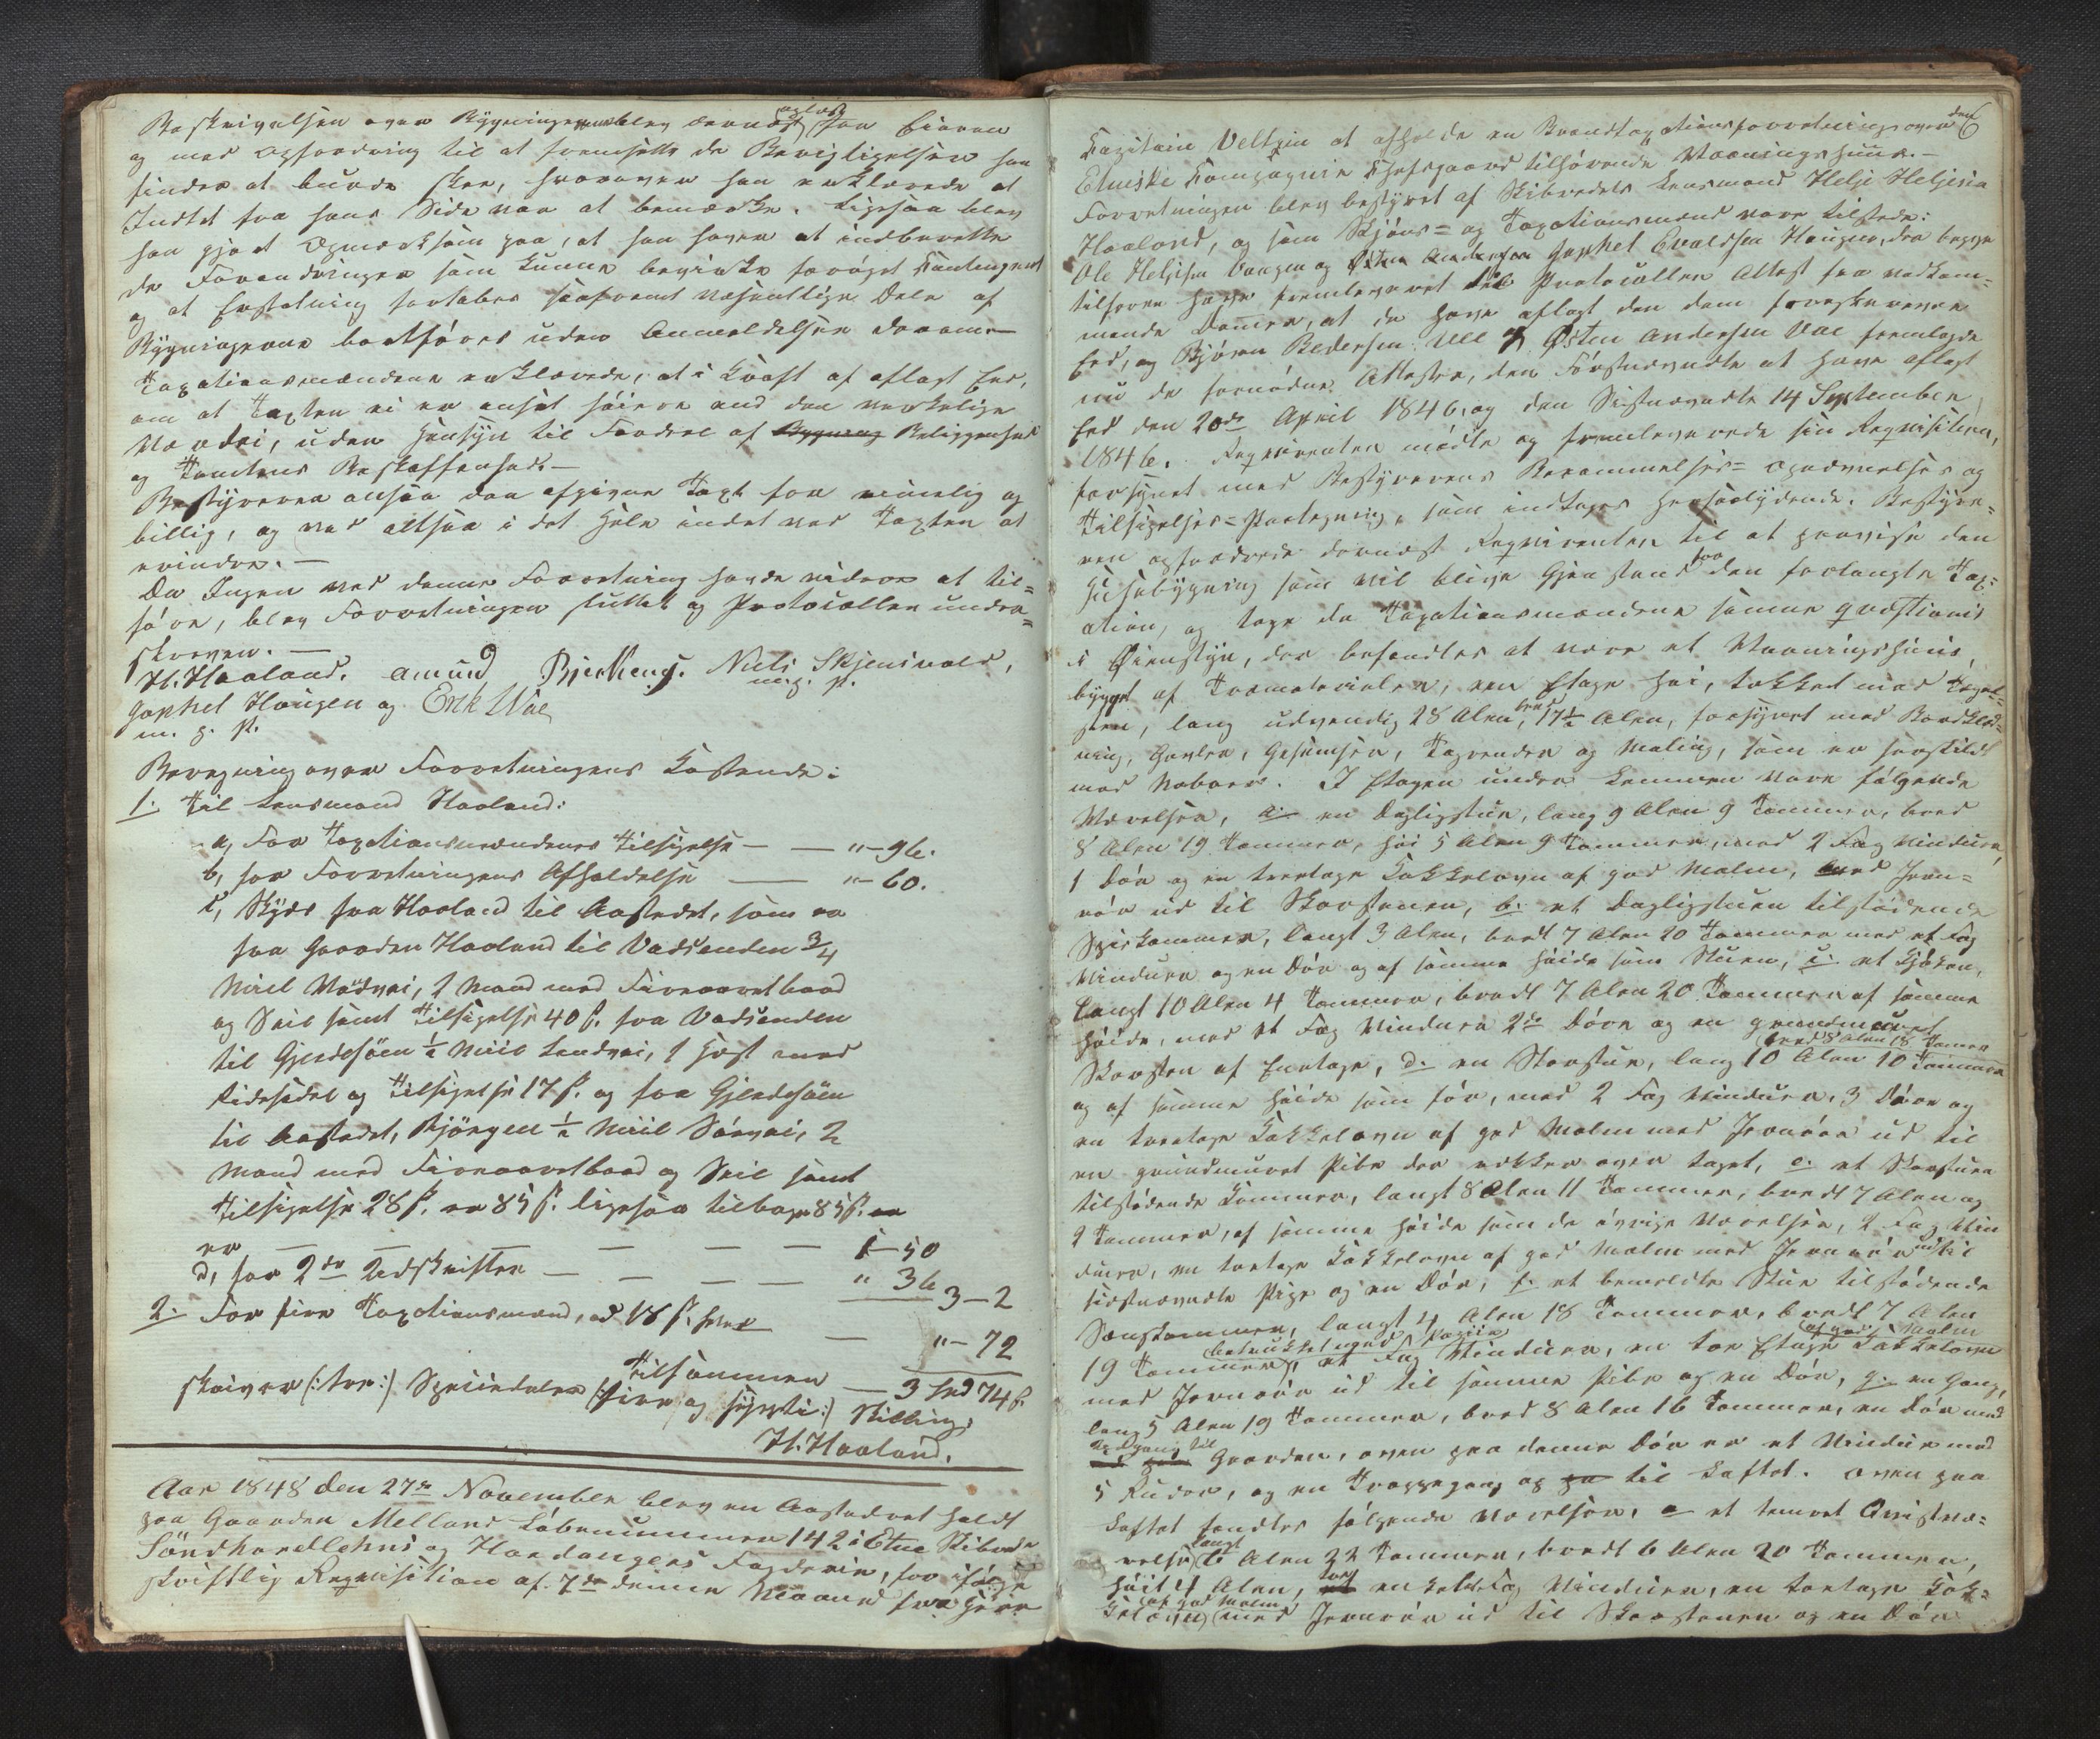 Beskrivelsen over Bygningerne blev dernæst oplæst for Eieren
og med Opfordring til at fremsætte de Berigtigelser han
finder at burde skee, hvorover han erklærede at
Indtet fra hans Side var at bemærke. Ligesaa blev
han gjort Opmærksom paa, at han haver at indberette
de Forandringer som kunne bevirke forøget Contingent
og at Erstatning fortabes saafremt væsentlige Dele af
Bygningerne bortføres uden Anmeldelse derom.—
Taxationsmændene erklærede, at i Kraft af aflagt Eed,
om at Taxten ei er ansat høiere end den verkelige
Værdi, uden Hensyn til Fordeel af Bygning Beliggenhed
og Tomtens Beskaffenhed.—
Bestyreren ansaa den afgivne Taxt for rimelig og
billig, og ved altsaa i det Hele indtet ved Taxten at
erindre.—
Da Ingen ved denne Forretning havde videre at til=
føre, blev Forretningen sluttet og Protocollen under=
skreven.—
H. Haaland. Amund Bjerkeng. Niels Skjensvold,
m. p. P.
Japhet Haugen og Erik Wae
m. p. P.
Beregning over Forretningens Kostende:
1. Til Lensmand Haaland:
a, For Taxationsmændenes Tilsigelse — — " - 96.
b, for Forretningens Afholdelse — " - 60.
c, Skyds fra Haaland til Aastedet, som er
fra Gaarden Haaland til Vadsenden 3/4
Miil Vadvei, 2 Mand med Fireaaretbaad
og Seil samt Tilsigelse 40 ß. fra Vadsenden
til Gjerdesøen 1/2 Miil Landvei, 1 Hest med
Ridesadel og Tilsigelse 17 ß. og fra Gjerdesøen
til Aastedet, Bjørgen 1/2 Miil Søevei, 2
Mand med Fireaaretbaad og Seil samt
Tilsigelse 28 ß. er 85 ß. ligesaa tilbage 85 ß. er
er — — — — — — 1 - 50
d, for 2de Udskrifter — — — — " 36 3 - 2
2. For fire Taxationsmænd, ad 18 ß. hver — " - 72
Tilsammen — 3 Spd 74 ß.
skriver (: tre :) Speciedaler (: fire og sypti :) Skilling.
H. Haaland.
Aar 1848 den 27de November blev en Aastedret holdt
paa Gaarden Melland Løbenummer 142 i Etne Skibrede
Søndhordlehns og Hardangers Fogderie, for ifølge
skriftlig Requisition af 7de denne Maaned fra Herr
6
Capitain Veltzin at afholde en Brandtaxationsforretning over det
Etneske Compagnie Chefsgaard tilhørende Vaaningshuus.—
Forretningen blev bestyret af Skibredets Lensmand Helje Heljesen
Haaland, og som Skjøns= og Taxationsmænd vare tilstede:
Ole Heljesen Vangen og Østen Andersen Japhet Evaldsen Haugen, der begge
tilforn have fremleveret til Protocollen Attest fra vedkom=
mende Dommer, at de have aflagt den dem foreskrevne
Eed, og Bjørn Pedersen Ull og Østen Andersen Vae fremlagde
nu de fornødne Attester, den Førstnævndte at have aflagt
Eed den 20de April 1846, og den Sistnævndte 14 September
1846. Requirenten mødte og fremleverede sin Requisition,
forsynet med Bestyrerens Berammelses= Opnævnelses og
Tilsigelses=Paategning, som indtages heesaalydende. Bestyre=
ren opfordrede dernæst Requirenten til at paavise den
Huusebygning som vil blive Gjenstand for den forlangte Tax=
ation, og tage da Taxationsmændene samme qvæstionis
i Øiensyn, der befandtes at være et Vaaningshuus,
bygget af Træmaterialer, een Etage høi, tækket med Tagel=
steen, lang udvendig 28 Alen, bred 17 1/2 Alen, forsynet med Bordklæd=
ning, Gavler, Gesimser, Tagrender og Maling, som er forskildt
med Naboer. I Etagen under Lemmen vare følgende
Værelser, a. en Dagligstue, lang 9 Alen 9 Tommer, bred
8 Alen 19 Tommer, høi 5 Alen 9 Tommer, med 2 Fag Vinduer,
1 Dør og en treetage Kakkelovn af god Malm, med Jern=
rør ud til Skorstenen, b. et Dagligstuen tilstødende
Spiskammer, langt 3 Alen, bredt 7 Alen 20 Tommer med et Fag
Vinduer og en Dør og af samme Høide som Stuen, c. et Kjøken,
langt 10 Alen 4 Tommer, bredt 7 Alen 20 Tommer af samme
Høide, med et Fag Vinduer 2de Døre og en grundmuret
Skorsten af Eenetage, d. en Storstue, lang 10 Alen 10 Tommer bred 8 Alen 18 Tommer
og af samme Høide som før, med 2 Fag Vinduer, 3 Døre og
en treetage Kakkelovn af god Malm med Jernrør ud til
en grundmuret Pibe der rækker over Taget, e. et Storstuen
tilstødende Kammer, langt 8 Alen 11 Tommer, bredt 7 Alen og
2 Tommer, af samme Høide som de øvrige Værelser, 2 Fag Vin
duer, en toetage Kakkelovn af god Malm med Jernrør ud til
sidstnævndte Pipe og en Dør, f. et bemeldte Stue tilstødende
Sængkammer, langt 4 Alen 18 Tommer, bredt 7 Alen
19 Tommer, betrukket med Papir et Fag Vinduer, en toe Etage Kakkelovn af god Malm
med Jernrør ud til samme Pibe og en Dør, g. en Gang,
lang 5 Alen 19 Tommer, bred 8 Alen 16 Tommer, en Dør med
Udgang til Gaarden, oven paa denne Dør er et Vindue med
5 Ruder, og en Trappegang op til Loftet. Oven paa
Loftet fandtes følgende Værelser, a et tømret Qvistvæ=
relse langt 6 Alen 22 Tommer, bredt 6 Alen 20 Tommer,
høit 4 Alen, tre enkelte Fag Vinduer, en toetage Kak=
kelovn af god Malm med Jernrør ud til Skorstenen og en Dør